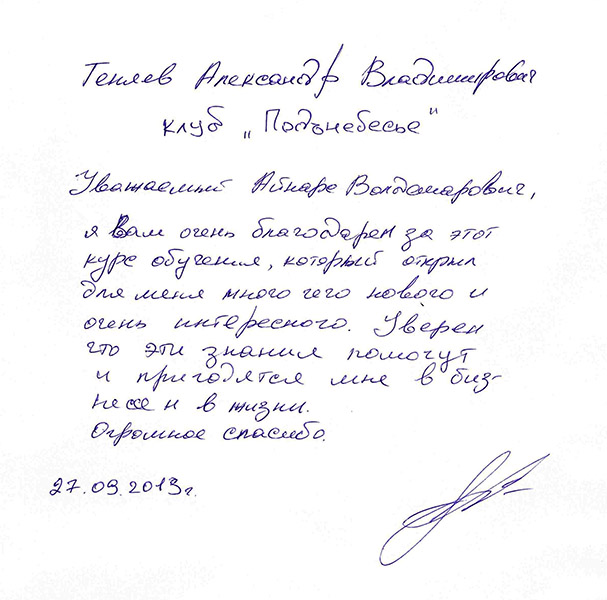 Геняев Александр Владимирович
клуб „Подънебесье"
Уважаемый Айнаре Волдемарович,
я Вам очень благодарен за этот
курс обучения, который открыл
для меня много чего нового и
очень интересного. Уверен
что эти знания помогут
и пригодятся мне в биз-
несе и в жизни.
Огромное спасибо.
27.09.2013г.